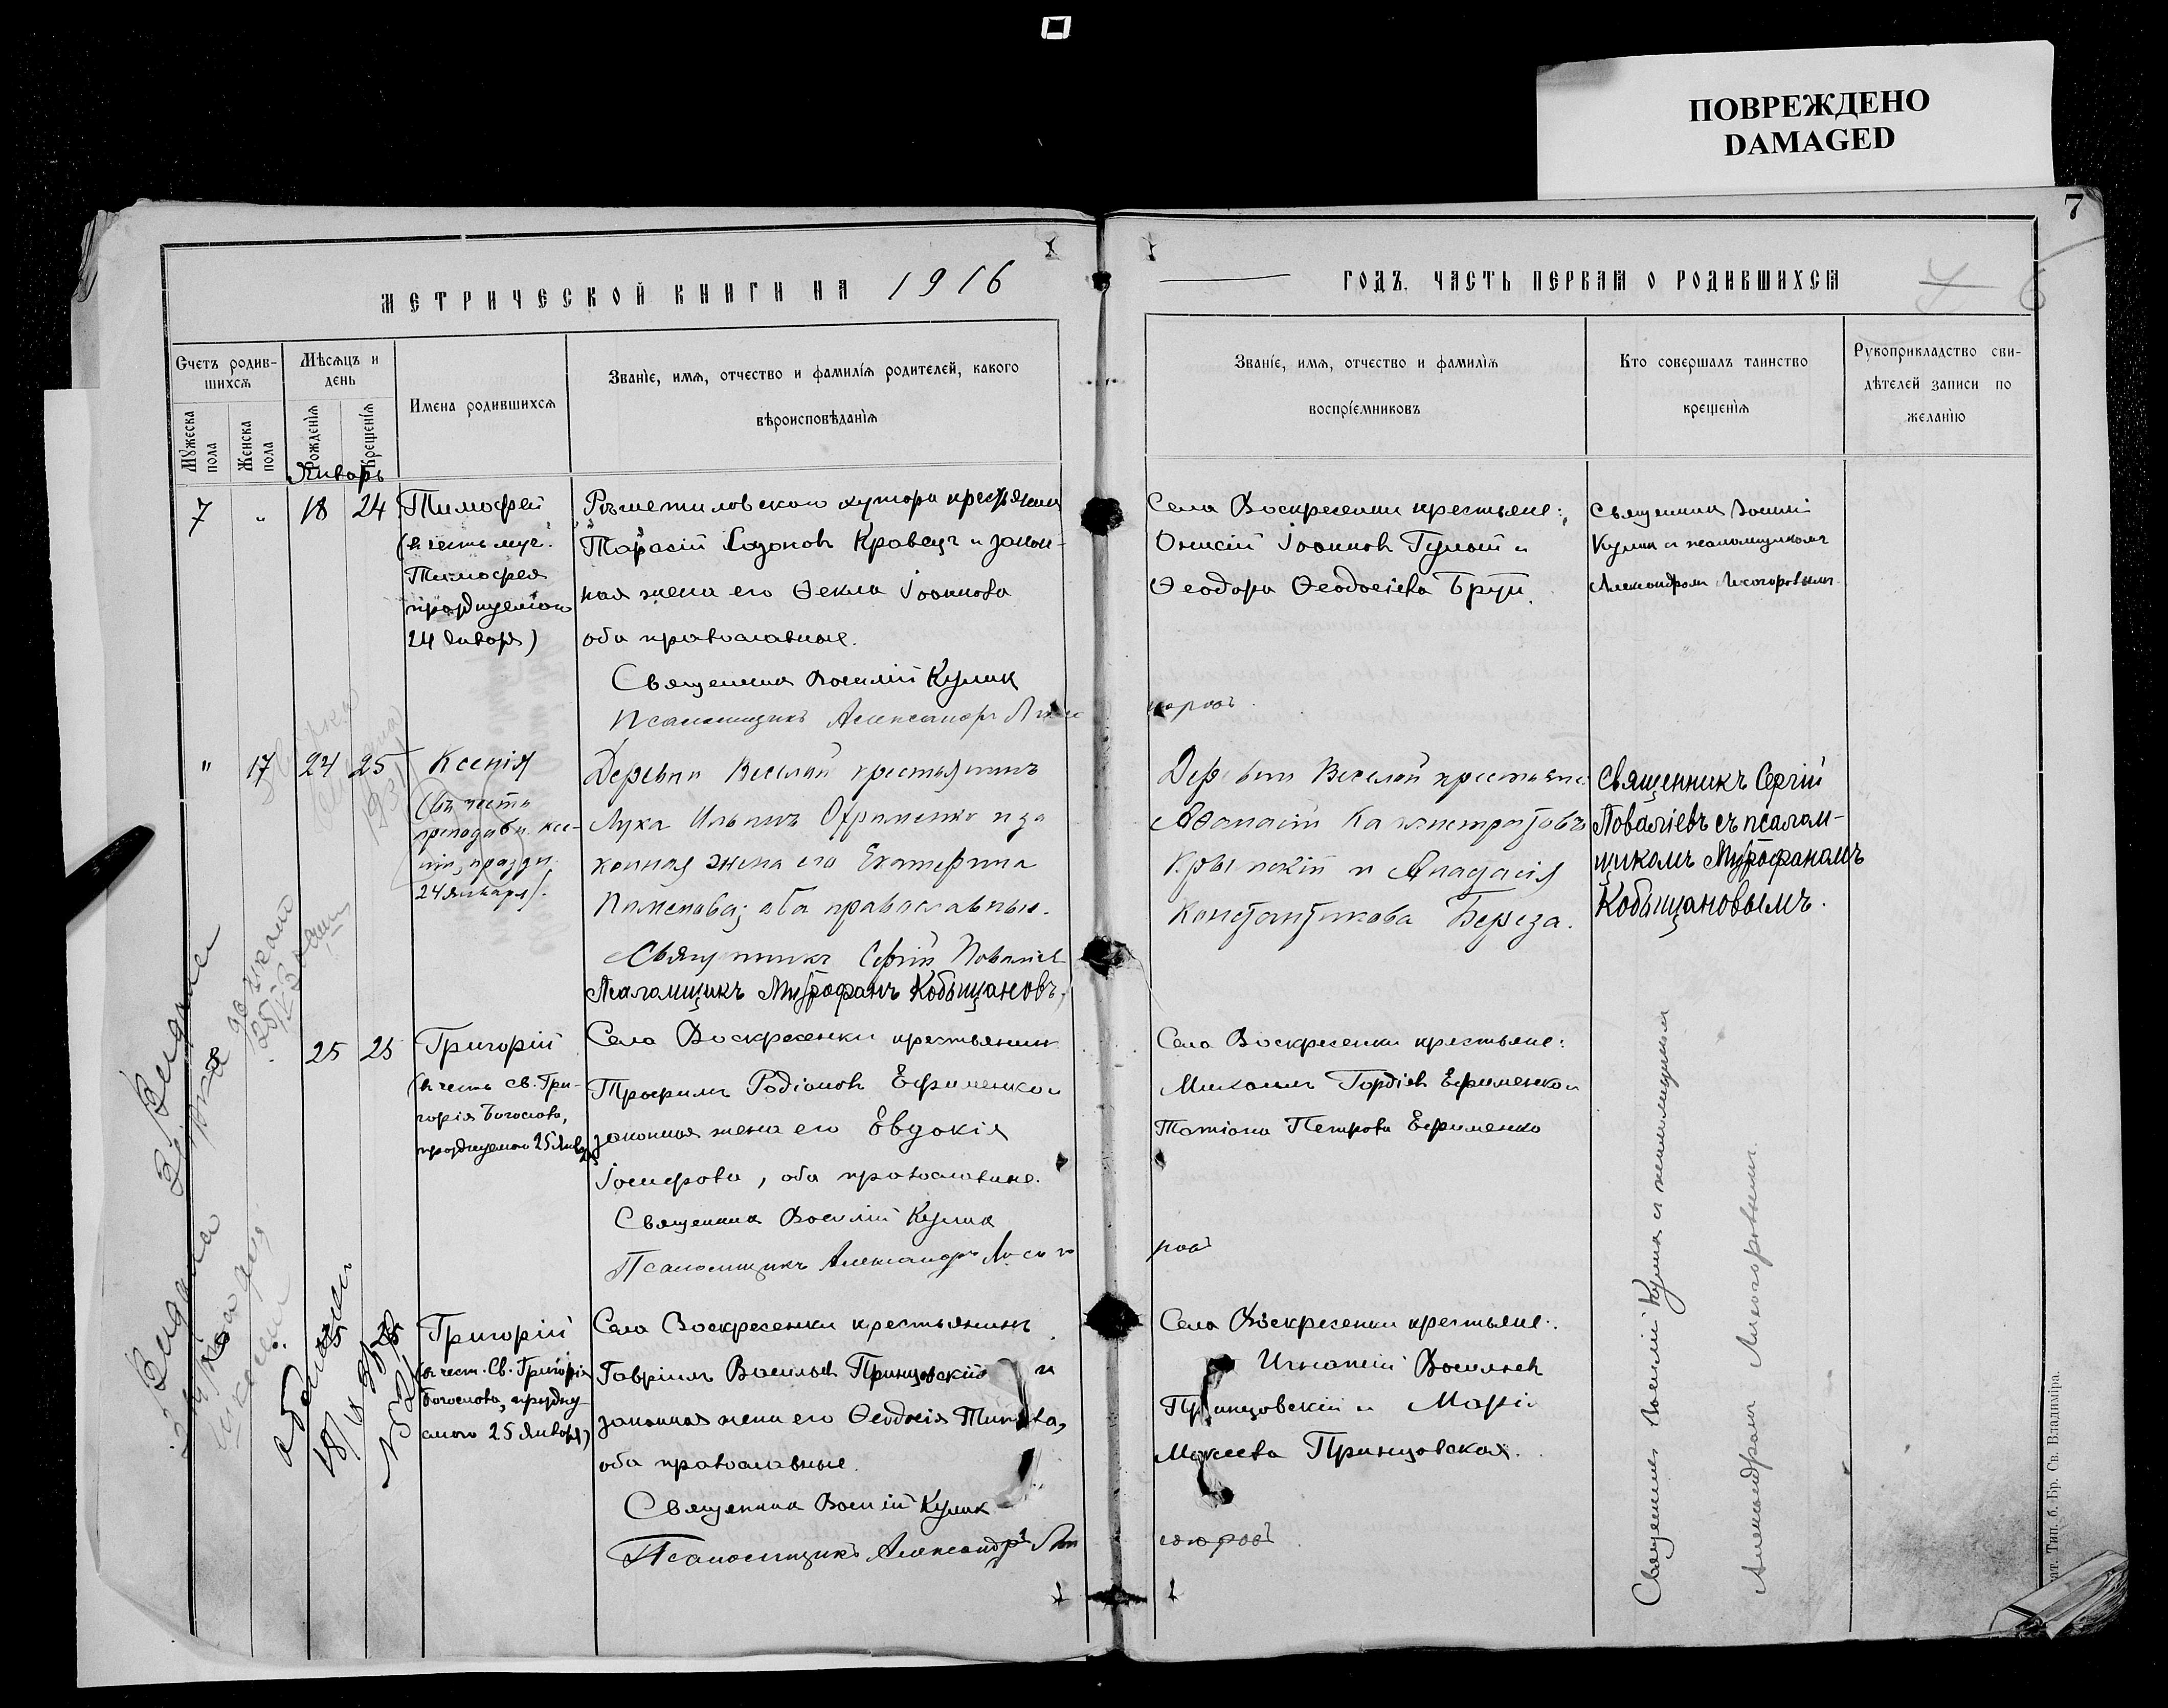 ПОВРЕЖДЕНО
DAMAGED
7
МЕТРИЧЕСКОЙ КНИГИ НА 1916
ГОДЪ, ЧАСТЬ ПЕРВАЯ О РОДИВШИХСЯ
Счетъ родив-
шихся
Мужеска
пола
Женска
пола
Мѣсяцъ и
день
Рожденія
Крещенія
Имена родившихся
Званіе, имя, отчество и фамилія родителей, какого
вѣроисповѣданія
Званіе, имя, отчество и фамилія
воспріемниковъ
Кто совершалъ таинство
крещенія
Рукоприкладство сви-
дѣтелей записи по
желанію
Январь
7 " 18 24
Тимофей
(в честь муч.
Тимофея
празднуемого
24 Января)
Рѣшетиловского хутора крестьянин
Тарасій Созонов Кравецъ и закон-
ная жена его Ѳекла Іоаннова
оба православные.
Священник Василій Кулик
Псаломщикъ Александръ
Села Воскресенки крестьяне:
Онисій Іоаннов Гулый и
Ѳеодора Ѳеодосіева
Священник Василій
Кулик и псаломщикомъ
Александром Лисогоровымъ
" 17 24 25
Ксенія
(въ честь
преподобн. Ксе-
ніи, праздн.
24 января).
Деревни Веселой крестьянинъ
Лука Ильинъ Охрименко и за
конная жена его Екатерина
оба православные.
Священникъ Сергій Поваліев
Псаломщикъ Митрофанъ Кобыщановъ.
Деревни Веселой крестьяне:
Аѳанасій Каллистратовъ
и Анастасія
Константинова Береза.
Священникъ Сергій
Поваліевъ съ псалом-
щикомъ Митрофаномъ
Кобыщановымъ.
25 25
Григорій
(в честь св. Гри-
горія Богослова,
празднуемого 25 Янв.)
Села Воскресенки крестьянин
Трофимъ Родіонов Ефименко и
законная жена его Евдокія
оба православные.
Священник Василій Кулик
Псаломщикъ Александръ
Села Воскресенки крестьяне:
Михаилъ Гордіев Ефименко и
Татіана Петрова Ефименко
Священник Василій Кулик и псаломщиком
Александром Лисогоровымъ.
25 25
Григорій
(в чест. Св. Григорія
Богослова, праздну-
емого 25 Января)
Села Воскресенки крестьянинъ
Гавріилъ Васильев Принцовскій и
законная жена его Ѳеодосія
оба православные.
Священник Василій Кулик
Псаломщикъ Александръ
Села Воскресенки крестьяне:
Игнатій Васильев
Принцовскій и Марія
Моисеева Принцовская.
ат. Тип. б. Бр. Св. Владиміра.